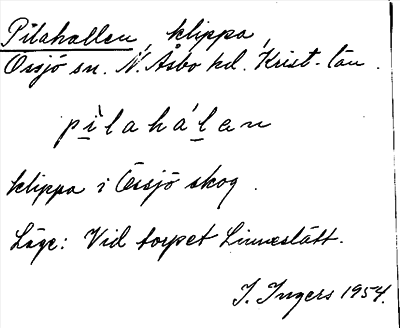 Pilahallen, klippa,
Össjö sn. N. Åsbo hd. Krist-län.
pìlahálan
klippa i Össjö skog.
Läge: Vid torpet Linneslätt.
I. Ingers 1954.